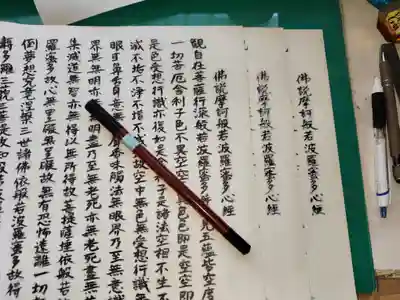 佛說摩訶般若波羅蜜多心經
佛說摩訶般若波羅蜜多心經
佛說摩訶般若波羅蜜多心經
觀自在菩薩行深般若波羅蜜多時見五蘊皆空度
一切苦厄舍利子色不異空空異色色即是空空即
是色受想行識亦復如是舍利子是諸法空相不生不
滅不垢不淨不增不減故空中無色無受想行識無
眼耳鼻舌身意無香味觸法無眼界乃至無意識
界無無明亦無明盡乃至無老死亦無老死盡無苦
集滅道無智亦無得以無所得故菩提薩埵依般若波
羅蜜多故心無罣礙無罣礙故無有恐怖遠離一切
倒夢想究竟涅槃三世諸佛依般若波羅蜜多故得
耨多羅三藐三菩提故知般若